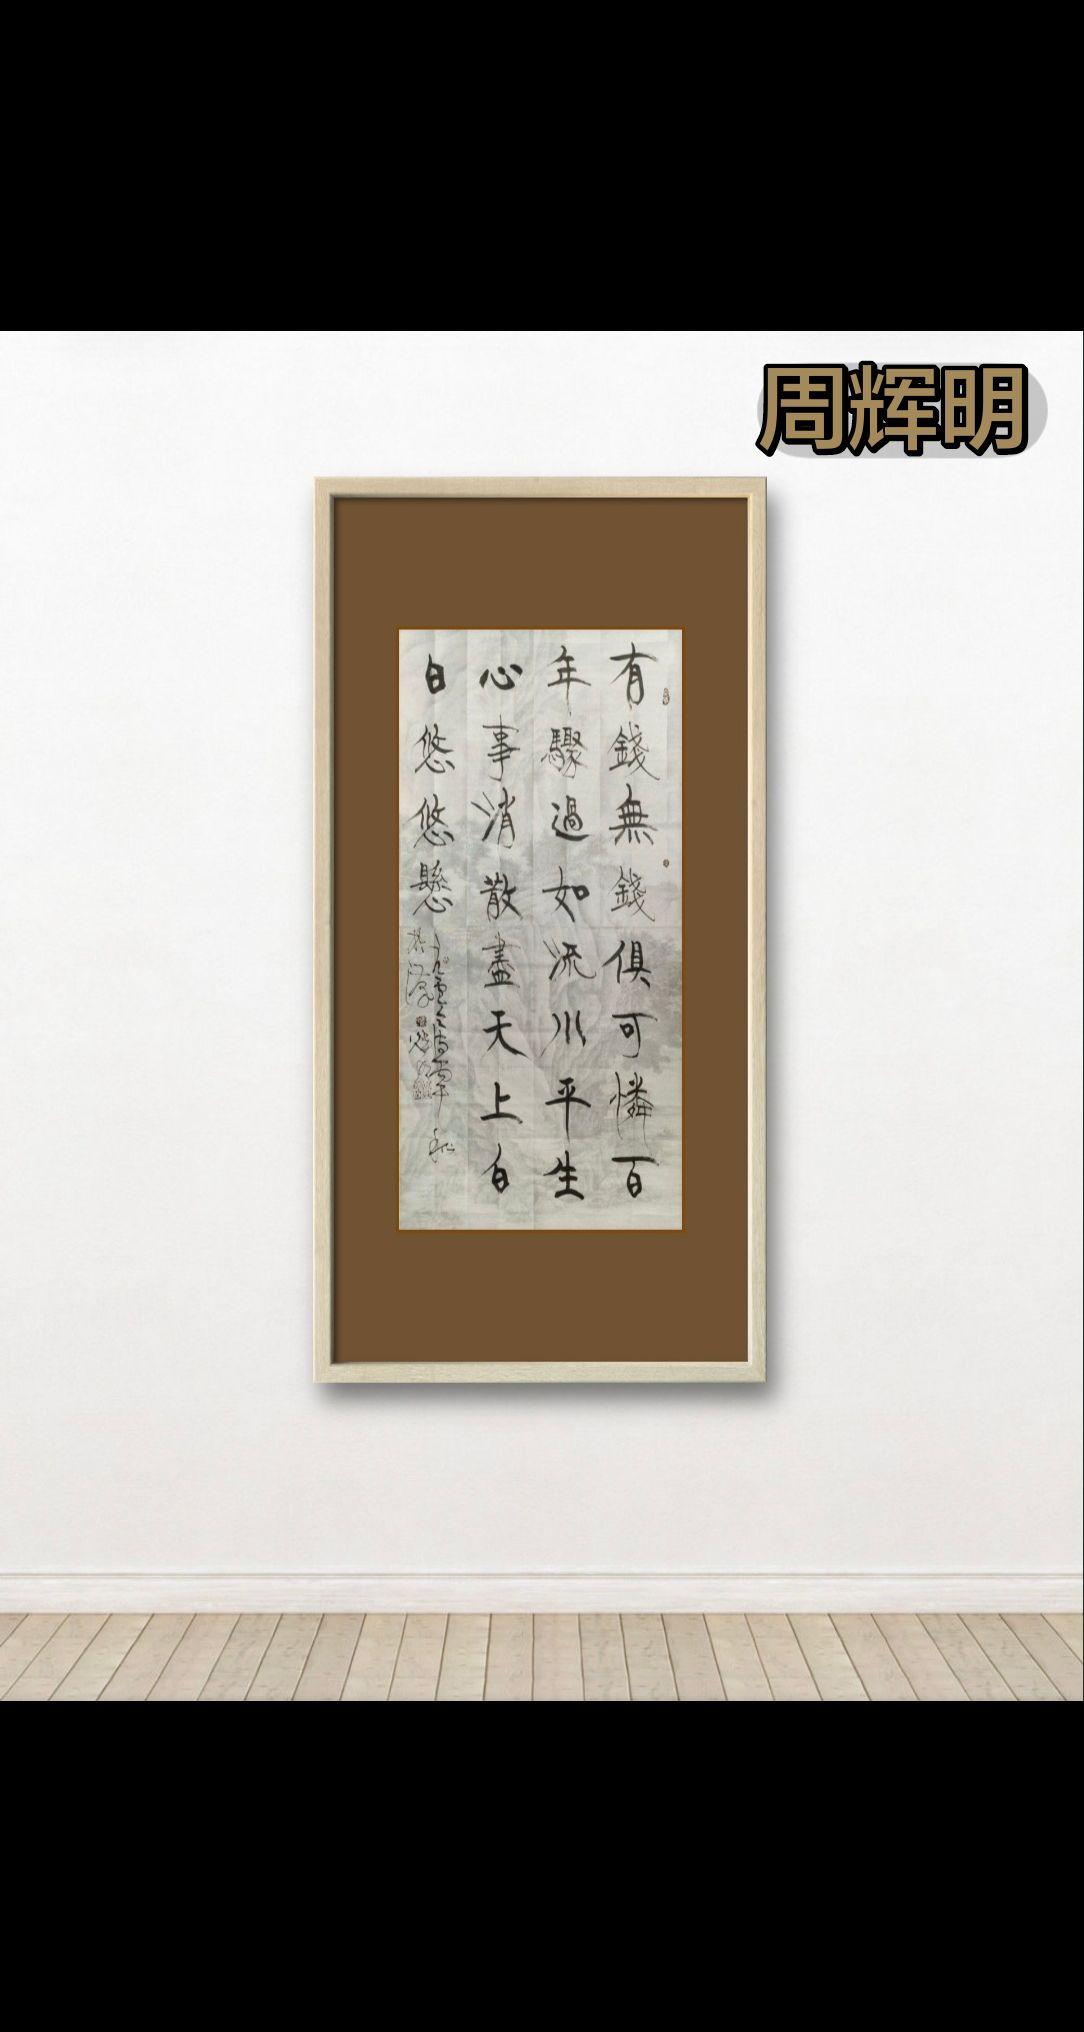 周辉明
有錢無錢俱可憐百
年驟過如流川平生
心事消散盡天上白
日悠悠懸